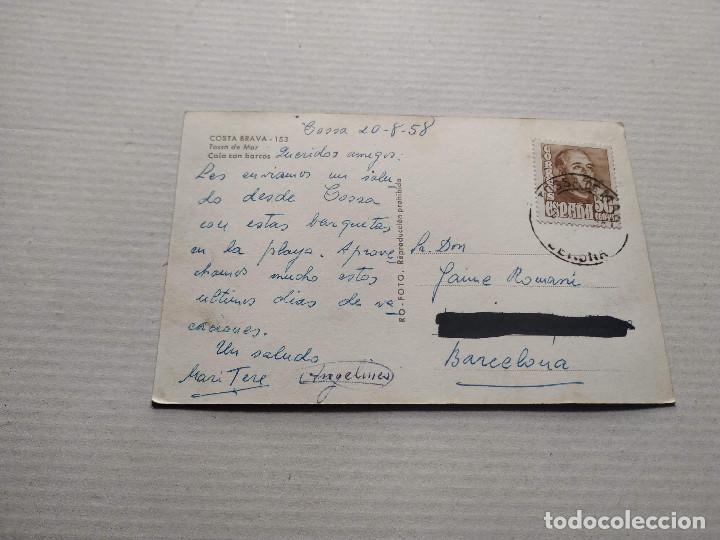 COSTA BRAVA - 153
Tossa de Mar
Cala con barcos
Tossa 20-8-58
Queridos amigos:
Les enviamos un salu-
do desde Tossa
con estas barquetas
en la playa. Aprove-
chamos mucho estos
ultimos dias de va-
caciones.
Un saludo
Mari Tere
Angelines
RO-FOTO. Reproducción prohibida
Sr. Don
Jaime Romaní
Barcelona
CORREOS
ESPAÑA
50
CENTIMOS
TOSSA DE MAR
GERONA
todocoleccion.net